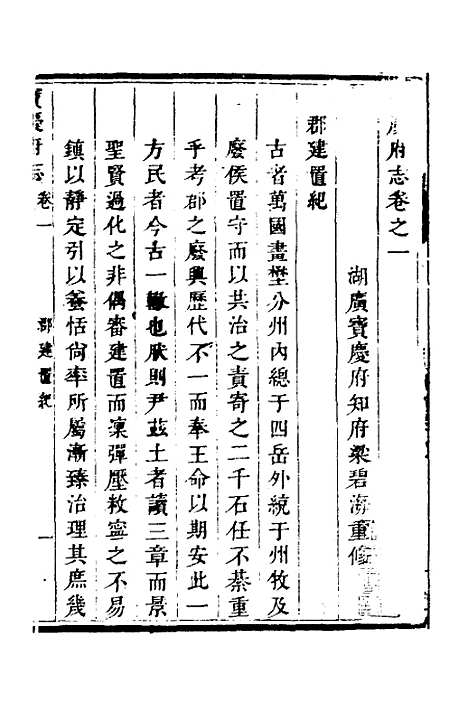 慶府志卷之一
湖廣寶慶府知府梁碧海重修
郡建置紀
古者萬國畫埜分州內總于四岳外統于州牧及
廢侯置守而以共治之責寄之二千石任不綦重
乎考郡之廢興歷代不一而奉王命以期安此一
方民者今古一轍也肰則尹茲土者讀三章而景
聖賢過化之非偶審建置而凜彈壓敉寧之不易
鎮以靜定引以養恬尙率所屬漸臻治理其庶幾
寶慶府志 卷一 郡建置紀 一